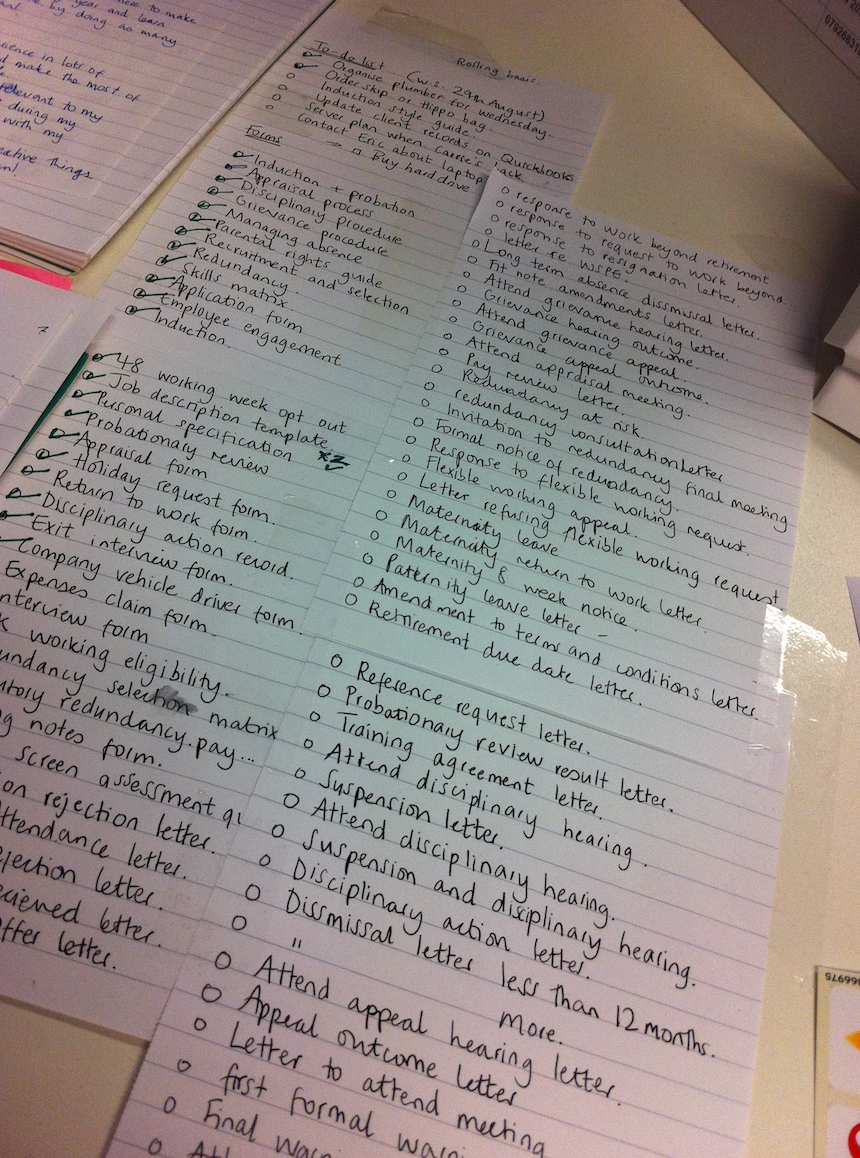 to make
year and learn
by doing as many
ience in lots of
make the most of
relevant to my
during my
with my
eative things
Rolling basis.
To-do list (w.s. 29th August)
Organise plumber for wednesday
Order skip or Hippo bag
Induction style guide
Update client records on Quickbooks
Server plan when Carrie's back
Contact Eric about laptop
→ Buy hard drive
Forms
Induction + probation
Appraisal process
Disciplinary procedure
Grievance procedure
Managing absence
Parental rights guide
Recruitment and selection
Redundancy.
Skills matrix
Application form
Employee engagement
Induction.
48 working week opt out
Job description template
Personal specification x2
Probationary review
Appraisal form
Holiday request form.
Return to work form.
Disciplinary action record.
Exit interview form.
Company vehicle driver form.
Expenses claim form.
nterview form
k working eligibility.
undancy selection matrix
utory redundancy pay...
g notes form.
screen assessment qu
on rejection letter.
ttendance letter.
ejection letter.
ecieved letter.
ffer letter.
response to work beyond retirement
response to request to work beyond...
response to resignation letter.
letter re WSPE.
Long term absence dissmissal letter.
Fit note amendments letter.
Attend grievance hearing letter.
Grievance hearing outcome.
Attend grievance appeal.
Grievance appeal outcome.
Attend appraisal meeting.
Pay review letter.
Redundancy at risk.
redundancy consultation letter
Invitation to redundancy final meeting
Formal notice of redundancy.
Response to flexible working request.
Flexible working appeal.
Letter refusing flexible working request
Maternity leave
Maternity return to work letter.
Maternity 8 week notice.
Paternity leave letter -
Amendment to terms and conditions letter.
Retirement due date letter.
Reference request letter.
Probationary review result letter.
Training agreement letter.
Attend disciplinary hearing.
Suspension letter.
Attend disciplinary hearing.
Suspension and disciplinary hearing.
Disciplinary action letter.
Dissmissal letter less than 12 months.
" more.
Attend appeal hearing letter.
Appeal outcome letter
Letter to attend meeting
first formal warni
Final warn
Att
366975